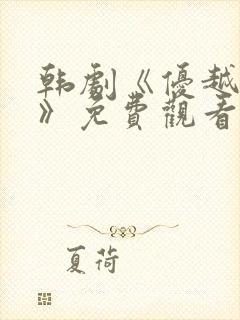 韩劇《優越
》免費觀看
夏荷